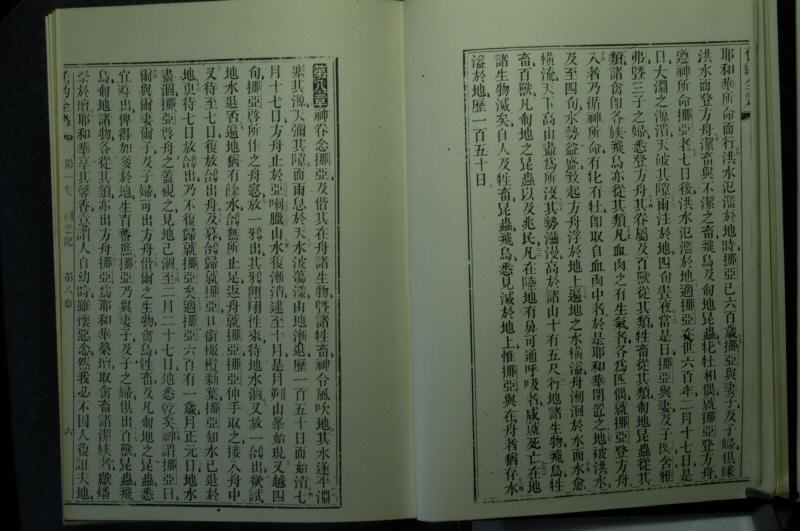 耶和華所命而行洪水氾濫於地時挪亞已六百歲挪亞與妻子及子婦俱緣
洪水而登方舟潔畜與不潔之畜飛鳥及匍地昆蟲牝牡相偶就挪亞登方舟
遵神所命挪亞者七日後洪水氾濫於地適挪亞在世六百年二月十七日是
日大淵之源潰天破其障雨注於地四旬晝夜當是日挪亞與妻及子閃含雅
弗曁三子之婦悉登方舟其眷屬及百獸從其類牲畜從其類匍地昆蟲從其
類諸禽卽各族飛鳥亦從其類凡血肉之有生氣者各爲匹偶就挪亞登方舟
入者乃循神所命有牝有牡卽取自血肉中者於是耶和華閉置之地被洪水
及至四旬水勢益盛致起方舟浮於地上遍地之水橫溢舟溯洄於水面水愈
橫流天下高山盡爲所沒其勢瀰漫高於諸山十有五尺行地諸生物飛鳥牲
畜百獸凡匍地之昆蟲以及兆民凡在陸地有鼻可通呼吸者咸就死亡在地
諸生物滅矣自人及牲畜昆蟲飛鳥悉見滅於地上惟挪亞與在舟者猶存水
溢於地歷一百五十日
第八章神眷念挪亞及偕其在舟諸生物曁諸牲畜神令風吹地其水遂平淵
塞其源天彌其障而雨息於天水波蕩漾由地漸退歷一百五十日而始消七
月十七日方舟止於亞喇臘山水復漸消逮至十月是月朔山峯始現又越四
旬挪亞啓所作之舟窓放一鴉出其鴉翺翔往來待地水涸又放一鴿出欲試
地水退否遍地猶有餘水鴿無所止足返舟就挪亞挪亞伸手取之接入舟中
又待至七日復放鴿出舟及暮鴿歸就挪亞口銜橄欖新葉挪亞知水已退於
地更待七日放鴿出乃不復歸就挪亞矣適挪亞六百有一歲月正元日地水
盡涸挪亞啓舟之蓋視之見地已涸至二月二十七日地悉乾矣神謂挪亞曰
爾與爾妻爾子及子婦可出方舟偕爾之生物禽鳥牲畜及凡匍地之昆蟲悉
宜導出俾得加多於地生育蕃庶挪亞乃與妻子及子之婦俱出百獸昆蟲飛
鳥匍地諸物各從其類亦出方舟挪亞爲耶和華築壇取禽畜諸潔族者獻燔
祭於壇耶和華享其馨香意謂人自幼時雖懷惡念然我必不因人復詛夫地
第八章
六